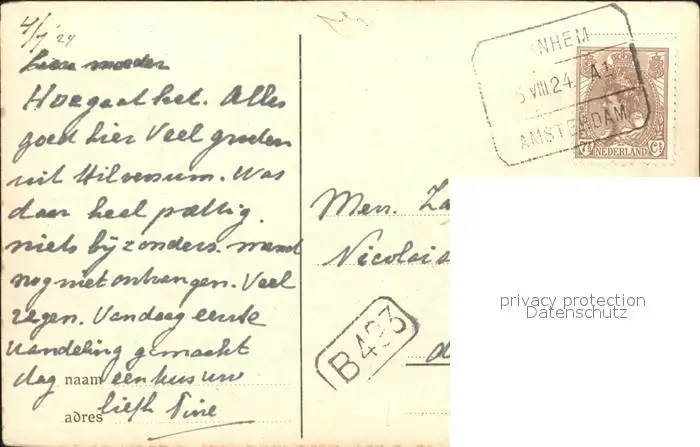 4/7 '24
Lieve moeder
Hoe gaat het. Alles
goed hier Veel groeten
uit Hilversum. Was
daar heel prettig.
niets bijzonders. mand
nog niet ontvangen. Veel
regen. Vandaag eerste
wandeling gemaakt
dag naam een kus uw
adres liefh Tine
NHEM
5 VIII 24. A1
AMSTERDAM
7½ NEDERLAND Ct
Mev. Za
Nicolais
B493
d
privacy protection
Datenschutz